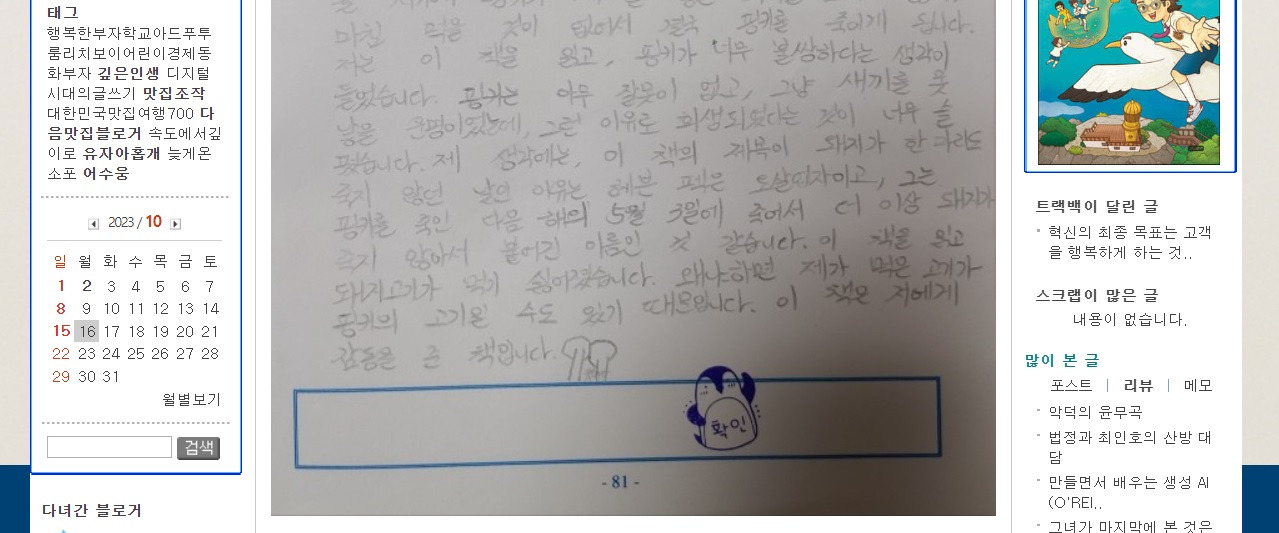 태그
행복한부자학교아드푸투
룸리치보이어린이경제동
화부자 깊은인생 디지털
시대의글쓰기 맛집조작
대한민국맛집여행700 다
음맛집블로거 속도에서깊
이로 유자아홉개 늦게온
소포 어수웅
2023 / 10
일 월 화 수 목 금 토
1 2 3 4 5 6 7
8 9 10 11 12 13 14
15 16 17 18 19 20 21
22 23 24 25 26 27 28
29 30 31
월별보기
검색
다녀간 블로거
먹을 것이 없어서 결국 핑키를 죽이게 됩니다.
저는 이 책을 읽고, 핑키가 너무 불쌍하다는 생각이
들었습니다. 핑키는 아무 잘못이 없고, 그냥 새끼를 못
낳을 뿐이었는데, 그런 이유로 희생되었다는 것이 너무 슬
펐습니다. 제 생각에는, 이 책의 제목이 돼지가 한 마리도
죽지 않던 날인 이유는 헤븐 펙은 도살업자이고, 그는
핑키를 죽인 다음 해의 5월 3일에 죽어서 더 이상 돼지가
죽지 않아서 붙여진 이름인 것 같습니다. 이 책을 읽고
돼지고기가 먹기 싫어졌습니다. 왜냐하면 제가 먹은 고기가
핑키의 고기일 수도 있기 때문입니다. 이 책은 저에게
감동을 준 책입니다.
확인
- 81 -
트랙백이 달린 글
혁신의 최종 목표는 고객
을 행복하게 하는 것..
스크랩이 많은 글
내용이 없습니다.
많이 본 글
포스트 | 리뷰 | 메모
악덕의 윤무곡
법정과 최인호의 산방 대
담
만들면서 배우는 생성 AI
(O'REI..
그녀가 마지막에 본 것은